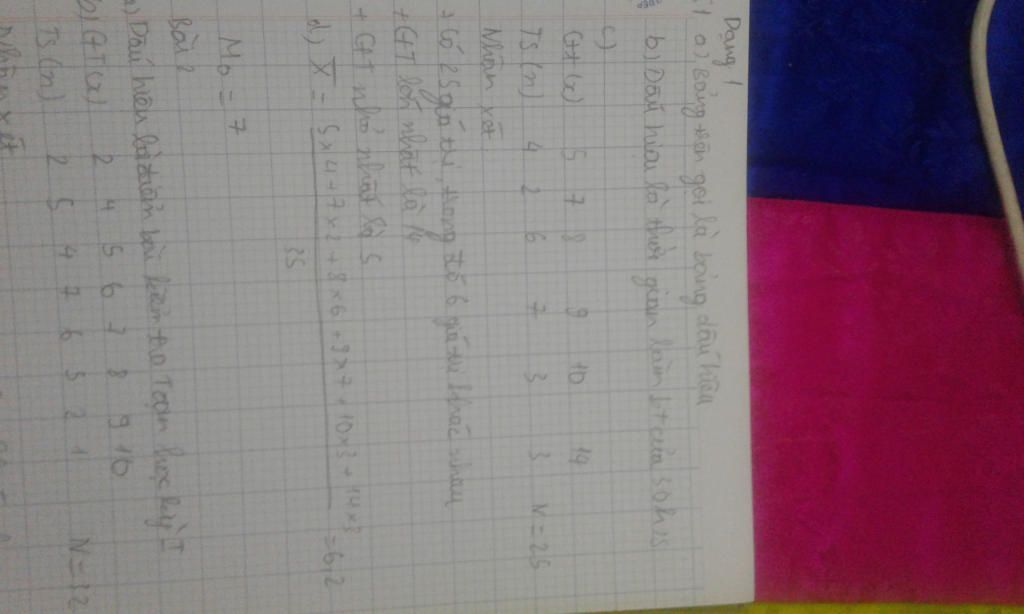 Dạng 1
a) Bảng trên gọi là bảng dấu hiệu
b) Dấu hiệu là thời gian làm bt của 30 h/s
c)
Gt(x) 5 7 8 9 10 14
TS(n) 4 2 6 7 3 3 N = 25
Nhận xét
+ Có 25 giá trị, trong đó 6 giá trị khác nhau
+ GT lớn nhất là 14
+ GT nhỏ nhất là 5
d) X = 5x4+7x2+8x6+9x7+10x3+14x3 = 6,2
Mo = 7
Bài 2
a) Dấu hiệu là điểm bài kiểm tra Toán học kỳ I
b) GT(x) 2 4 5 6 7 8 9 10
TS(n) 2 5 4 7 6 5 2 1 N = 32
Nhận xét